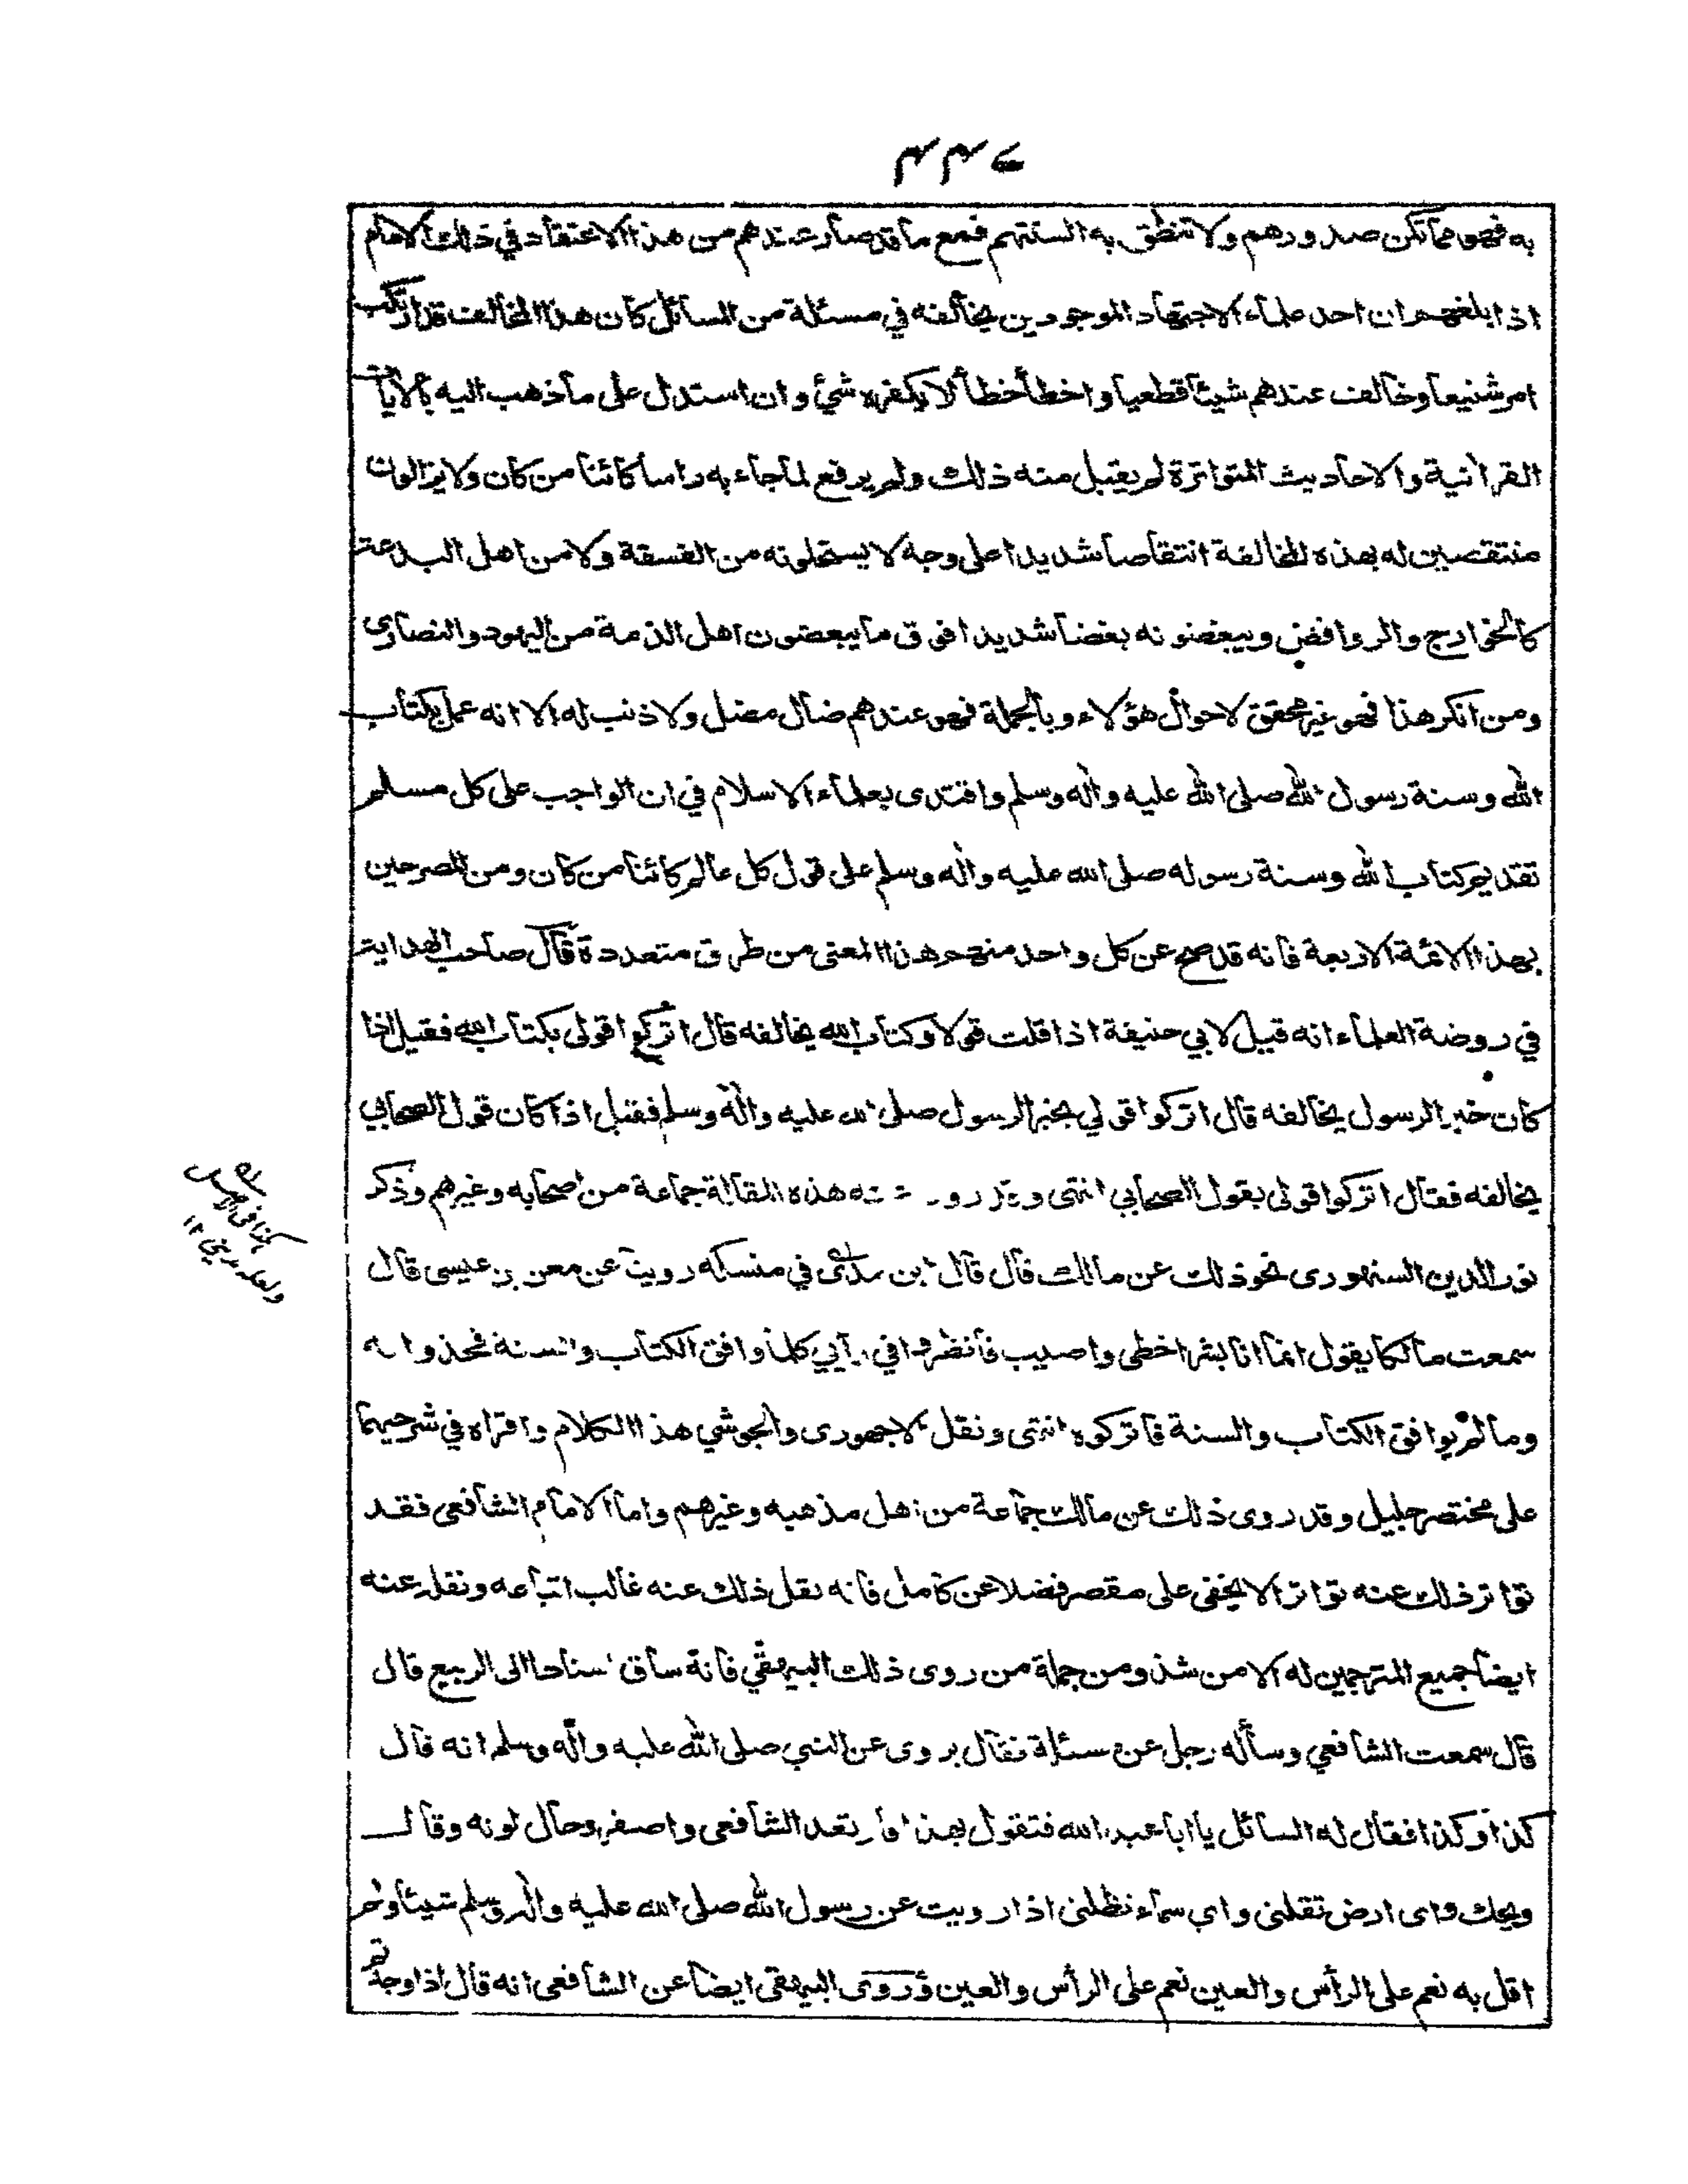 به فهو مما تكن صدورهم ولا تنطق به السنتهم فمع ما قد صار عندهم من هذا الاعتقاد في ذلك الامام
اذا بلغهم ان احد علماء الاجتهاد الموجودين يخالفه في مسئلة من المسائل كان هذا المخالف قد ارتكب
امرا شنيعا وخالف عندهم شيئا قطعيا واخطأ خطأ لا يكفره شئ وان استدل على ما ذهب اليه بالآيات
القرانية والاحاديث المتواترة لم يقبل منه ذلك ولم يرفع لما جاء به راسا كائنا من كان ولا يزالون
منتقصين له بهذه المخالفة انتقاصا شديدا على وجه لا يستحلونه من الفسقة ولا من اهل البدعة
كالخوارج والروافض ويبغضونه بغضا شديدا فوق ما يبغضون اهل الذمة من اليهود والنصارى
ومن انكر هذا فهو غير محقق لاحوال هؤلاء وبالجملة فهو عندهم ضال مضل ولا ذنب له الا انه عمل بكتاب
الله وسنة رسول الله صلى الله عليه واله وسلم واقتدى بعلماء الاسلام في ان الواجب على كل مسلم
تقديم كتاب الله وسنة رسوله صلى الله عليه واله وسلم على قول كل عالم كائنا من كان ومن المصرحين
بهذا الائمة الاربعة فانه قد صح عن كل واحد منهم هذا المعنى من طرق متعددة قال صاحب الهداية
في روضة العلماء انه قيل لابي حنيفة اذا قلت قولا وكتاب الله يخالفه قال اتركوا قولى بكتاب الله فقيل اذا
كان خبر الرسول يخالفه قال اتركوا قولي بخبر الرسول صلى الله عليه واله وسلم فقيل اذا كان قول الصحابي
يخالفه فقال اتركوا قولى بقول الصحابي انتهى وقد روى عنه هذه المقالة جماعة من اصحابه وغيرهم وذكر
نور الدين السنهورى نحو ذلك عن مالك قال قال ابن مسدى في منسكه رويت عن معن بن عيسى قال
سمعت مالكا يقول انما انا بشر اخطى واصيب فانظروا في رأيي كلما وافق الكتاب والسنة فخذوا به
وما لم يوافق الكتاب والسنة فاتركوه انتهى ونقل الاجهورى والخرشي هذا الكلام واقراه في شرحيهما
على مختصر خليل وقد روى ذلك عن مالك جماعة من اهل مذهبه وغيرهم واما الامام الشافعى فقد
تواتر ذلك عنه تواترا لا يخفى على مقصر فضلا عن كامل فانه نقل ذلك عنه غالب اتباعه ونقله عنه
ايضا جميع المترجمين له الا من شذ ومن جملة من روى ذلك البيهقي فانه ساق اسنادا الى الربيع قال
قال سمعت الشافعي وسأله رجل عن مسئلة فقال يروى عن النبي صلى الله عليه واله وسلم انه قال
كذا وكذا فقال له السائل يا ابا عبد الله فتقول بهذا فارتعد الشافعى واصفر وحال لونه وقال
ويحك واى ارض تقلنى واي سماء تظلنى اذا رويت عن رسول الله صلى الله عليه واله وسلم شيئا ولم
اقل به نعم على الرأس والعين نعم على الرأس والعين وروى البيهقى ايضا عن الشافعى انه قال اذا وجدتم
كذا في الاصل